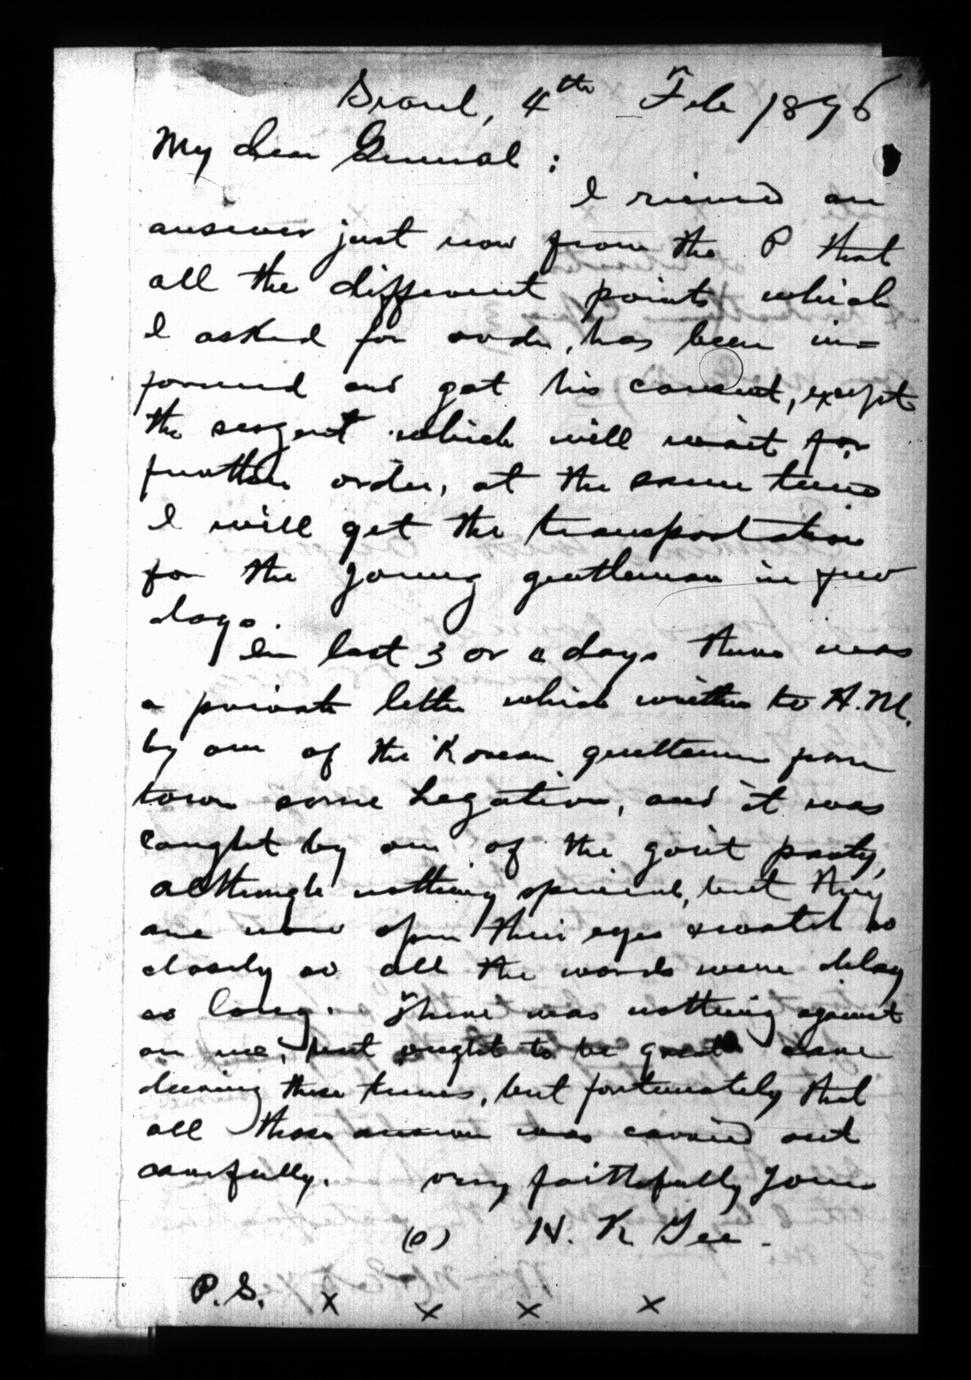 Seoul, 4th Feb 1896
My dear General:
I recieved an
answer just now from the P that
all the different points which
I asked for order, has been in=
formed and got his consent, except
the sergent which will wait for
further order, at the same time
I will get the transportation
for the young gentleman in few
days.
In last 3 or 4 days there was
a private letter which written to H.M.
by one of the Korean gentleman from
town some Legation, and it was
caught by one of the govt party,
although nothing special, but they
are now open their eyes & watch so
closely so all the words were delay
so long. There was nothing against
on me, but ought to be great care
during these times, but fortunately that
all those answer was carried out
carefully. very faithfully yours
(s) H. K. Yee.
P.S. x x x x